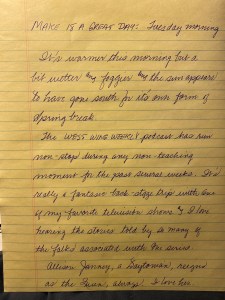 MAKE IT A GREAT DAY: Tuesday morning
It's warmer this morning but a
bit wetter & foggier & the sun appears
to have gone south for its own form of
Spring break.
The WEST WING WEEKLY podcast has run
non-stop during any non-teaching
moment for the past several weeks. It's
really a fantastic back-stage trip with one
of my favorite television shows & I love
hearing the stories told by so many of
the folks associated with the series.
Allison Janney, a Daytonian, reigns
as the Queen, always! I love her